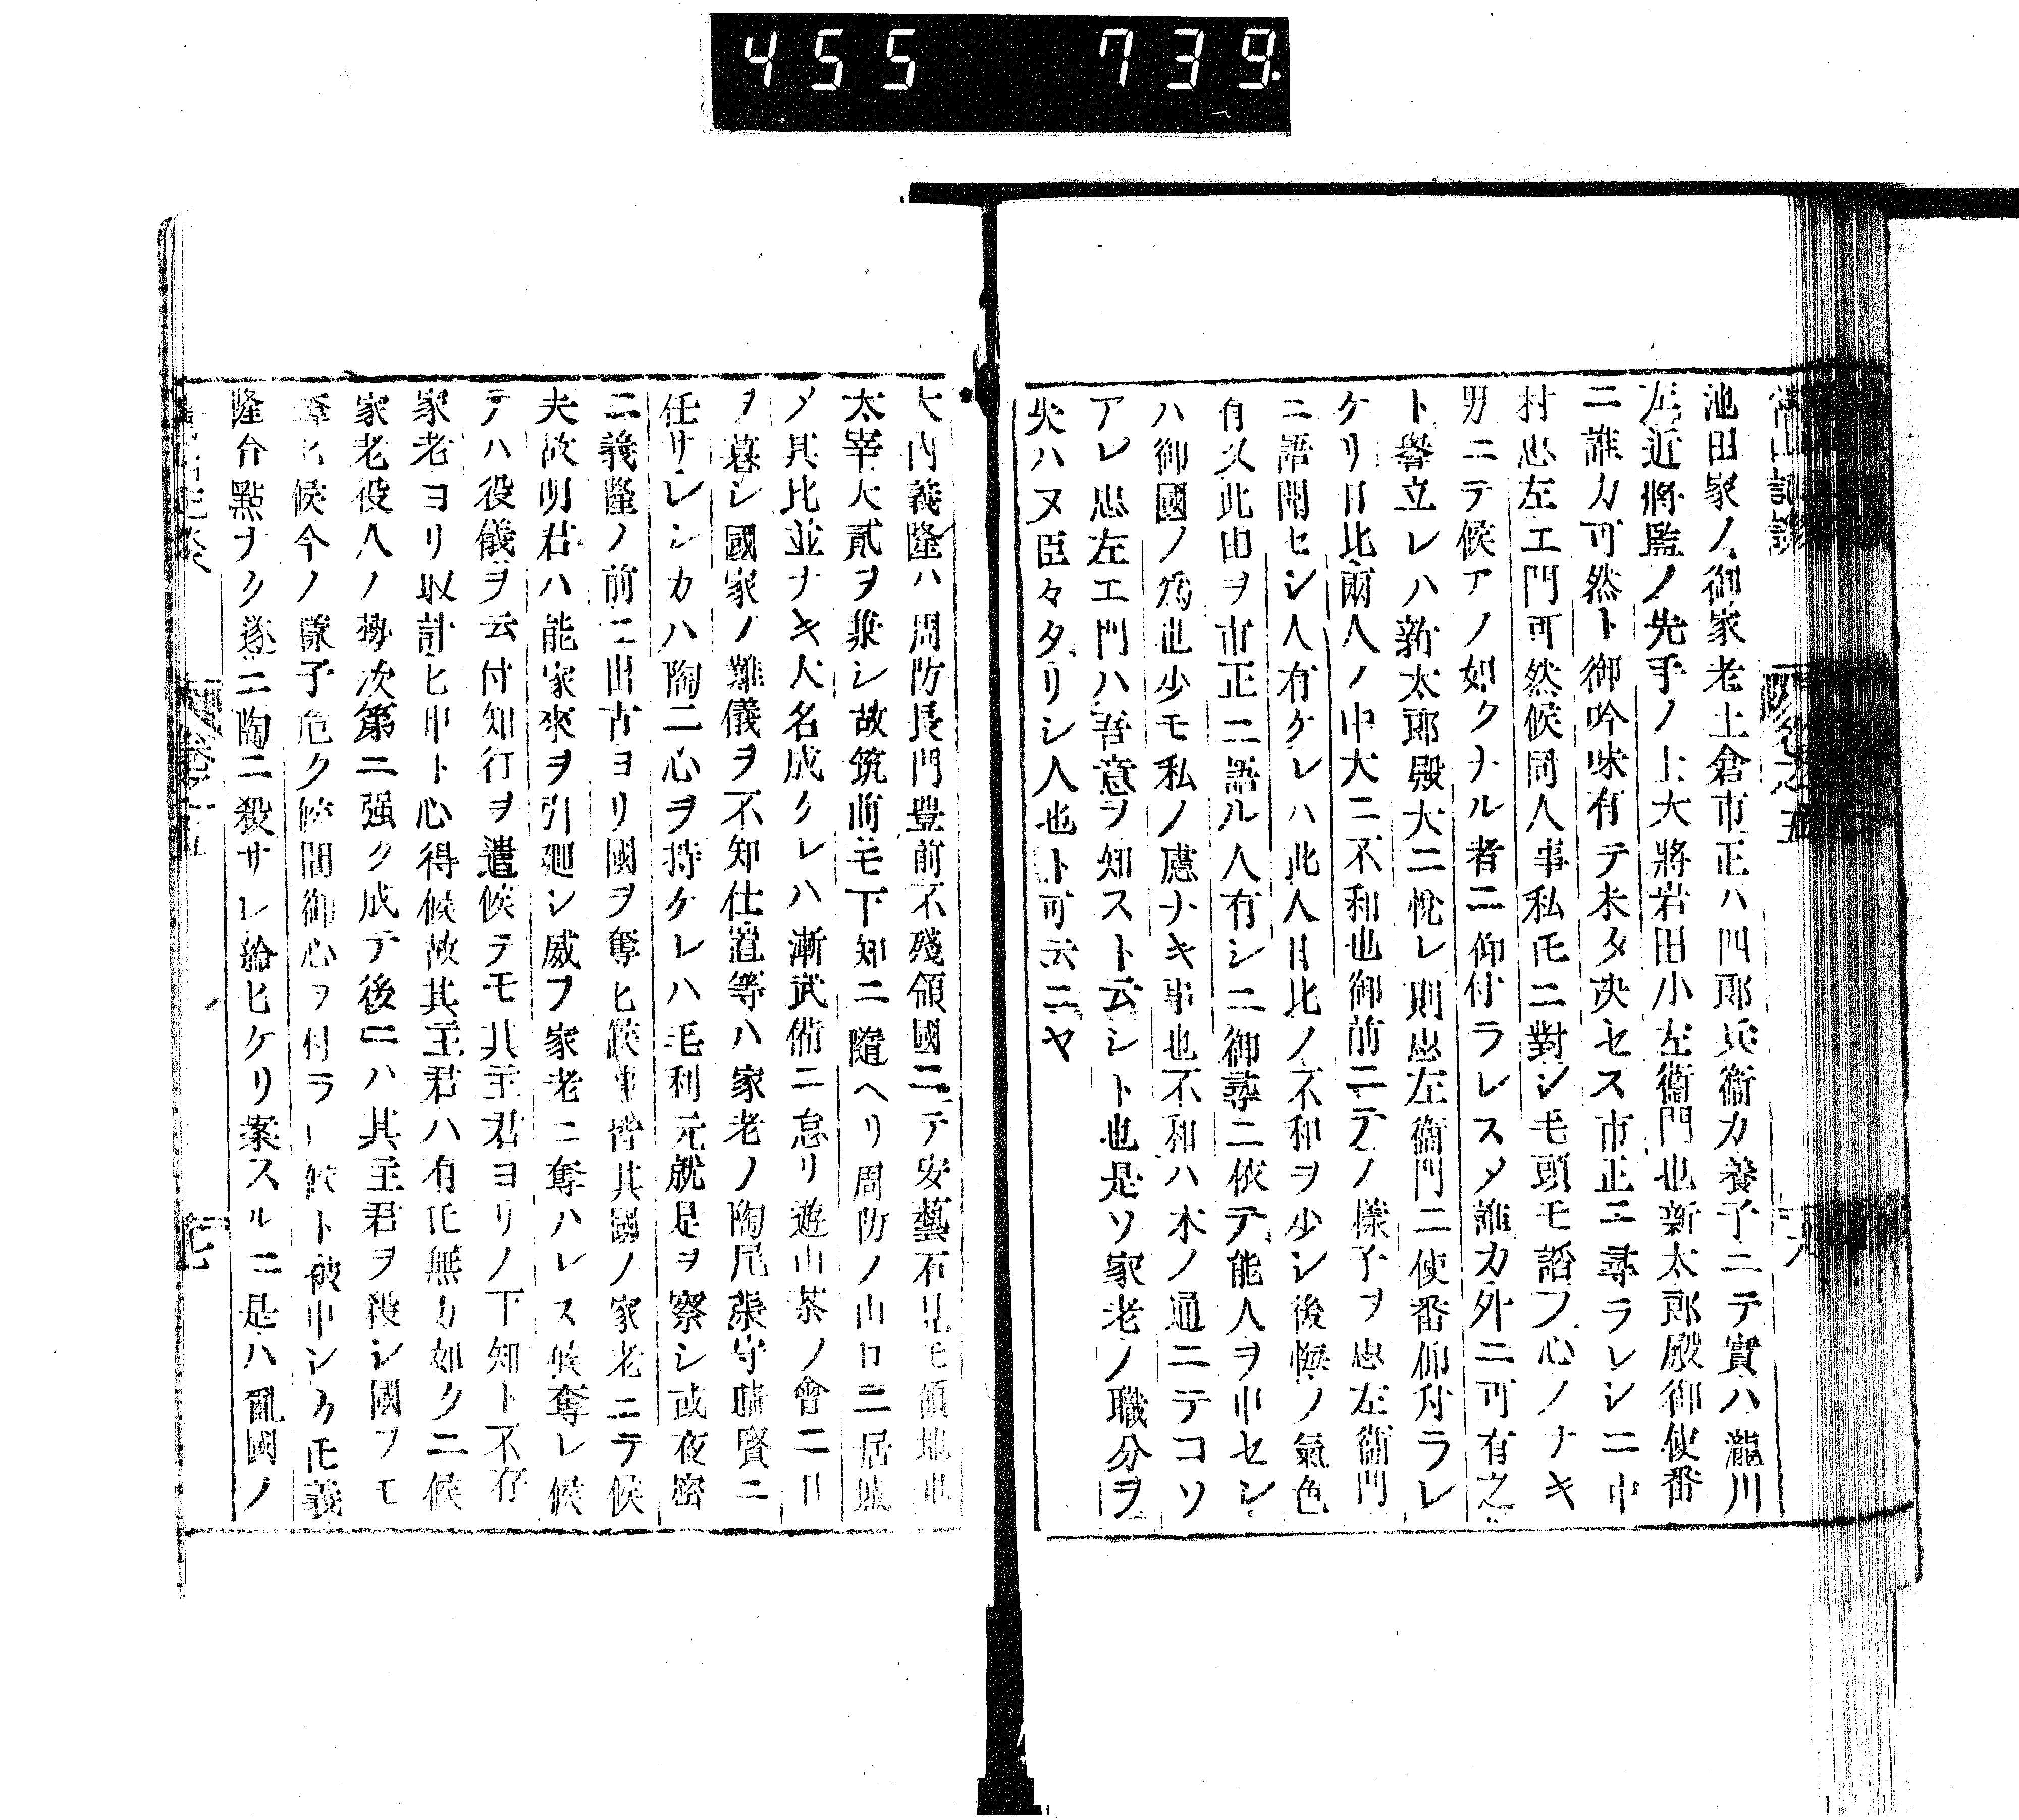 455 739
池田家ノ御家老土倉市正ハ四郎兵衞カ養子ニテ實ハ瀧川
左近將監ノ先手ノ上大將岩田小左衞門也新太郎殿御使番
ニ誰カ可然ト御吟味有テ未タ决セス市正エ尋ラレシニ中
村忠左エ門可然候同人事私𪜈ニ對シモ頭モ謟フ心ノナキ
男ニテ候アノ如クナル者ニ仰付ラレスメ誰カ外ニ可有之
ト譽立レハ新太郎殿大ニ悅レ則忠左衞門ニ使番仰付ラレ
ケリ日比兩人ノ中大ニ不和也御前ニテノ樣子ヲ忠左衞門
ニ語聞セシ人有ケレハ此人日比ノ不和ヲ少シ後悔ノ氣色
有又此由ヲ市正ニ語ル人有シニ御尋ニ依テ能人ヲ申セシ
ハ御國ノ爲也少モ私ノ慮ナキ事也不和ハ木ノ通ニテコソ
アレ忠左エ門ハ吾意ヲ知スト云シト也是ソ家老ノ職分ヲ
失ハヌ臣々タリシ人也ト可云ニヤ
大內義隆ハ周防長門豊前不殘領國ニテ安藝石見モ領地也
太宰大貳ヲ兼シ故筑前モ下知ニ隨ヘリ周防ノ山口ニ居城
メ其比並ナキ大名成クレハ漸武備ニ怠リ遊山茶ノ會ニ日
ヲ暮シ國家ノ難儀ヲ不知仕置等ハ家老ノ陶尾張守晴賢ニ
任サレシカハ陶二心ヲ持ケレハ毛利元就是ヲ察シ或夜密
ニ義隆ノ前ニ出古ヨリ國ヲ奪ヒ候事皆其國ノ家老ニテ候
夫故明君ハ能家來ヲ引廻シ威ヲ家老ニ奪ハレス候奪レ候
テハ役儀ヲ云付知行ヲ遣候テモ其主君ヨリノ下知ト不存
家老ヨリ取計ヒ申ト心得候故其主君ハ有𪜈無カ如クニ候
家老役人ノ勢次第ニ强ク成テ後ニハ其主君ヲ殺シ國ヲモ
奪ヒ候今ノ樣子危ク候間御心ヲ付ラレ候ト被申シカ𪜈義
隆合點ナク遂ニ陶ニ殺サレ給ヒケリ案スルニ是ハ亂國ノ